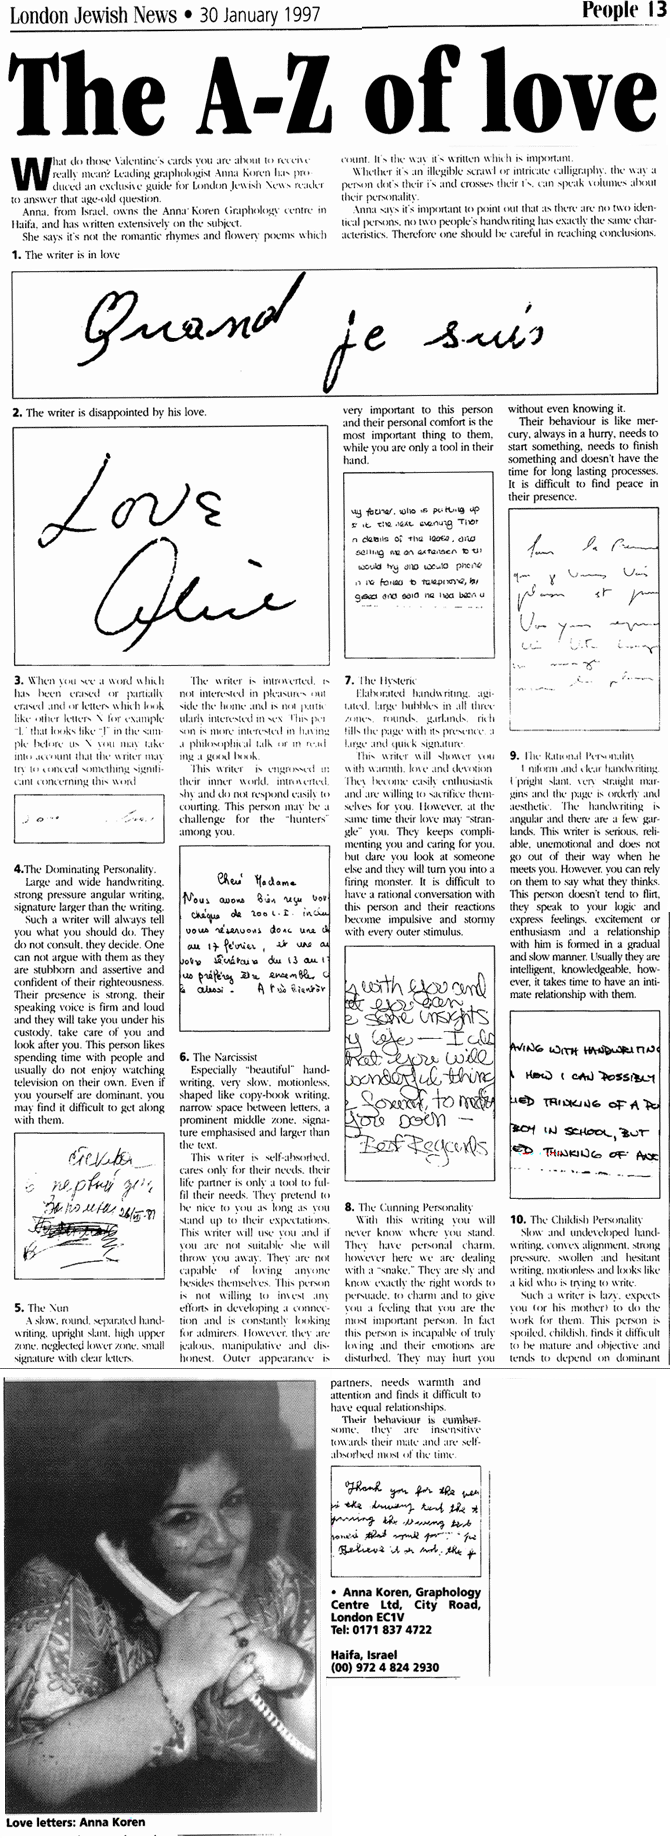 London Jewish News • 30 January 1997
People 13
The A-Z of love
What do those Valentine's cards you are about to receive
really mean? Leading graphologist Anna Koren has pro-
duced an exclusive guide for London Jewish News reader
to answer that age-old question.
Anna, from Israel, owns the Anna Koren Graphology centre in
Haifa, and has written extensively on the subject.
She says it's not the romantic rhymes and flowery poems which
count. It's the way it's written which is important.
Whether it's an illegible scrawl or intricate calligraphy, the way a
person dot's their i's and crosses their t's, can speak volumes about
their personality.
Anna says it's important to point out that as there are no two iden-
tical persons, no two people's handwriting has exactly the same char-
acteristics. Therefore one should be careful in reaching conclusions.
1. The writer is in love
Quand je suis
2. The writer is disappointed by his love.
Love
Alice
3. When you see a word which
has been erased or partially
erased and or letters which look
like other letters N for example
"L" that looks like "J" in the sam-
ple before us N you may take
into account that the writer may
try to conceal something signifi-
cant concerning this word
4.The Dominating Personality.
Large and wide handwriting,
strong pressure angular writing,
signature larger than the writing.
Such a writer will always tell
you what you should do. They
do not consult, they decide. One
can not argue with them as they
are stubborn and assertive and
confident of their righteousness.
Their presence is strong, their
speaking voice is firm and loud
and they will take you under his
custody, take care of you and
look after you. This person likes
spending time with people and
usually do not enjoy watching
television on their own. Even if
you yourself are dominant, you
may find it difficult to get along
with them.
5. The Nun
A slow, round, separated hand-
writing, upright slant, high upper
zone, neglected lower zone, small
signature with clear letters.
The writer is introverted, is
not interested in pleasures out
side the home and is not partic
ularly interested in sex. This per
son is more interested in having
a philosophical talk or in read
ing a good book.
This writer is engrossed in
their inner world, introverted,
shy and do not respond easily to
courting. This person may be a
challenge for the "hunters"
among you.
Cheré Madame
Nous avons bien reçu vot
chèque de 200 L.I. inclu
vous réservons donc une c
au 17 février, et une au
votre secrétaire du 13 au 17
us préférez être ensemble c
à aussi. A très bientôt
6. The Narcissist
Especially "beautiful" hand-
writing, very slow, motionless,
shaped like copy-book writing,
narrow space between letters, a
prominent middle zone, signa-
ture emphasised and larger than
the text.
This writer is self-absorbed,
cares only for their needs, their
life partner is only a tool to ful-
fil their needs. They pretend to
be nice to you as long as you
stand up to their expectations.
This writer will use you and if
you are not suitable she will
throw you away. They are not
capable of loving anyone
besides themselves. This person
is not willing to invest any
efforts in developing a connec-
tion and is constantly looking
for admirers. However, they are
jealous, manipulative and dis-
honest. Outer appearance is
very important to this person
and their personal comfort is the
most important thing to them,
while you are only a tool in their
hand.
my father, who is putting up
s it the next evening That
n details of the lease, and
selling me an extension to th
would try and would phone
n he failed to telephone, by
gised and said he had been u
7. The Hysteric
Elaborated handwriting, agi-
tated, large bubbles in all three
zones, rounds, garlands, rich
fills the page with its presence, a
large and quick signature.
This writer will shower you
with warmth, love and devotion
They become easily enthusiastic
and are willing to sacrifice them-
selves for you. However, at the
same time their love may "stran-
gle" you. They keeps compli-
menting you and caring for you,
but dare you look at someone
else and they will turn you into a
firing monster. It is difficult to
have a rational conversation with
this person and their reactions
become impulsive and stormy
with every outer stimulus.
s with you and
at you can
e some insights
y life — I als
that you will
wonderful thing
e forward, to meetin
you soon —
Best Regards
8. The Cunning Personality
With this writing you will
never know where you stand.
They have personal charm,
however here we are dealing
with a "snake." They are sly and
know exactly the right words to
persuade, to charm and to give
you a feeling that you are the
most important person. In fact
this person is incapable of truly
loving and their emotions are
disturbed. They may hurt you
without even knowing it.
Their behaviour is like mer-
cury, always in a hurry, needs to
start something, needs to finish
something and doesn't have the
time for long lasting processes.
It is difficult to find peace in
their presence.
9. The Rational Personality
Uniform and clear handwriting,
Upright slant, very straight mar-
gins and the page is orderly and
aesthetic. The handwriting is
angular and there are a few gar-
lands. This writer is serious, reli-
able, unemotional and does not
go out of their way when he
meets you. However, you can rely
on them to say what they thinks.
This person doesn't tend to flirt,
they speak to your logic and
express feelings, excitement or
enthusiasm and a relationship
with him is formed in a gradual
and slow manner. Usually they are
intelligent, knowledgeable, how-
ever, it takes time to have an inti-
mate relationship with them.
AVING WITH HANDWRITING
HOW I CAN POSSIBLY
IED THINKING OF A PO
BOY IN SCHOOL, BUT I
ED THINKING OF
10. The Childish Personality
Slow and undeveloped hand-
writing, convex alignment, strong
pressure, swollen and hesitant
writing, motionless and looks like
a kid who is trying to write.
Such a writer is lazy, expects
you (or his mother) to do the
work for them. This person is
spoiled, childish, finds it difficult
to be mature and objective and
tends to depend on dominant
partners, needs warmth and
attention and finds it difficult to
have equal relationships.
Their behaviour is cumber-
some, they are insensitive
towards their mate and are self-
absorbed most of the time.
Thank you for the
in the driving test the
the driving test
that
Believe it or not, the
• Anna Koren, Graphology
Centre Ltd, City Road,
London EC1V
Tel: 0171 837 4722
Haifa, Israel
(00) 972 4 824 2930
Love letters: Anna Koren